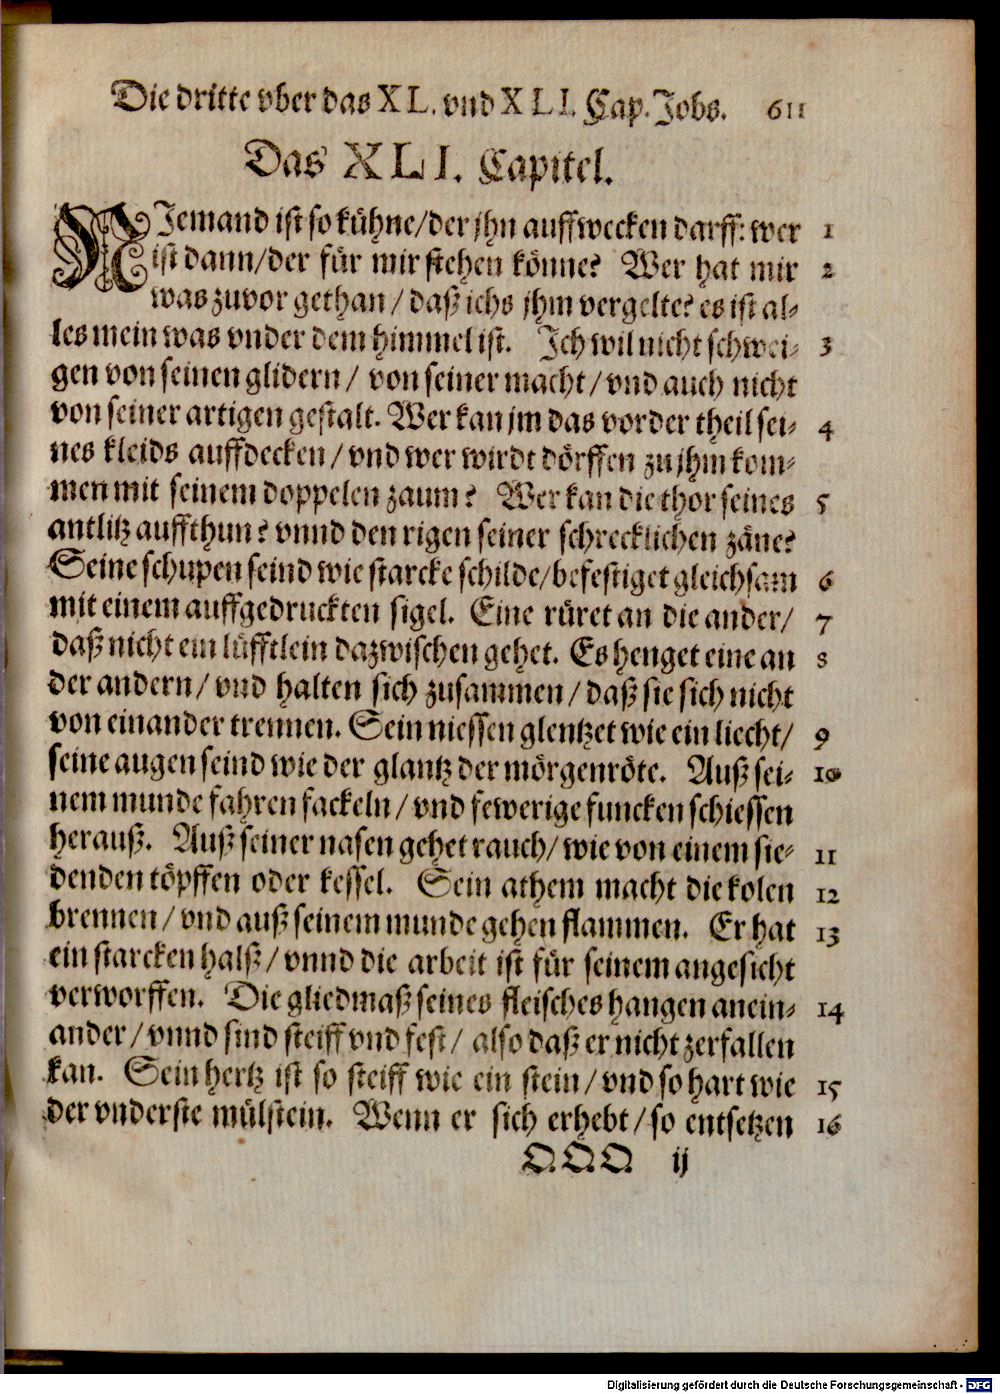 Die dritte vber das XL. vnd XLI. Cap. Jobs. 611
Das XLI. Capitel.
NJemand ist so kühne/der jhn auffwecken darff: wer 1
ist dann/der für mir stehen könne? Wer hat mir 2
was zuvor gethan/ daß ichs jhm vergelte? es ist al-
les mein was vnder dem himmel ist. Ich wil nicht schwei- 3
gen von seinen glidern/ von seiner macht/vnd auch nicht
von seiner artigen gestalt. Wer kan jm das vorder theil sei- 4
nes kleids auffdecken/vnd wer wirdt dörffen zu jhm kom-
men mit seinem doppelen zaum? Wer kan die thor seines 5
antlitz auffthun? vnnd den rigen seiner schrecklichen zäne?
Seine schupen seind wie starcke schilde/befestiget gleichsam 6
mit einem auffgedruckten sigel. Eine rüret an die ander/ 7
daß nicht ein lüfftlein dazwischen gehet. Es henget eine an 8
der andern/vnd halten sich zusammen/daß sie sich nicht
von einander trennen. Sein niessen glentzet wie ein liecht/ 9
seine augen seind wie der glantz der mörgenröte. Auß sei- 10
nem munde fahren fackeln/vnd fewerige funcken schiessen
herauß. Auß seiner nasen gehet rauch/wie von einem sie- 11
denden töpffen oder kessel. Sein athem macht die kolen 12
brennen/vnd auß seinem munde gehen flammen. Er hat 13
ein starcken halß/vnnd die arbeit ist für seinem angesicht
verworffen. Die gliedmaß seines fleisches hangen anein- 14
ander/vnnd sind steiff vnd fest/ also daß er nicht zerfallen
kan. Sein hertz ist so steiff wie ein stein/vnd so hart wie 15
der vnderste mülstein. Wenn er sich erhebt/so entsetzen 16
QQQ ij
Digitalisierung gefördert durch die Deutsche Forschungsgemeinschaft - DFG